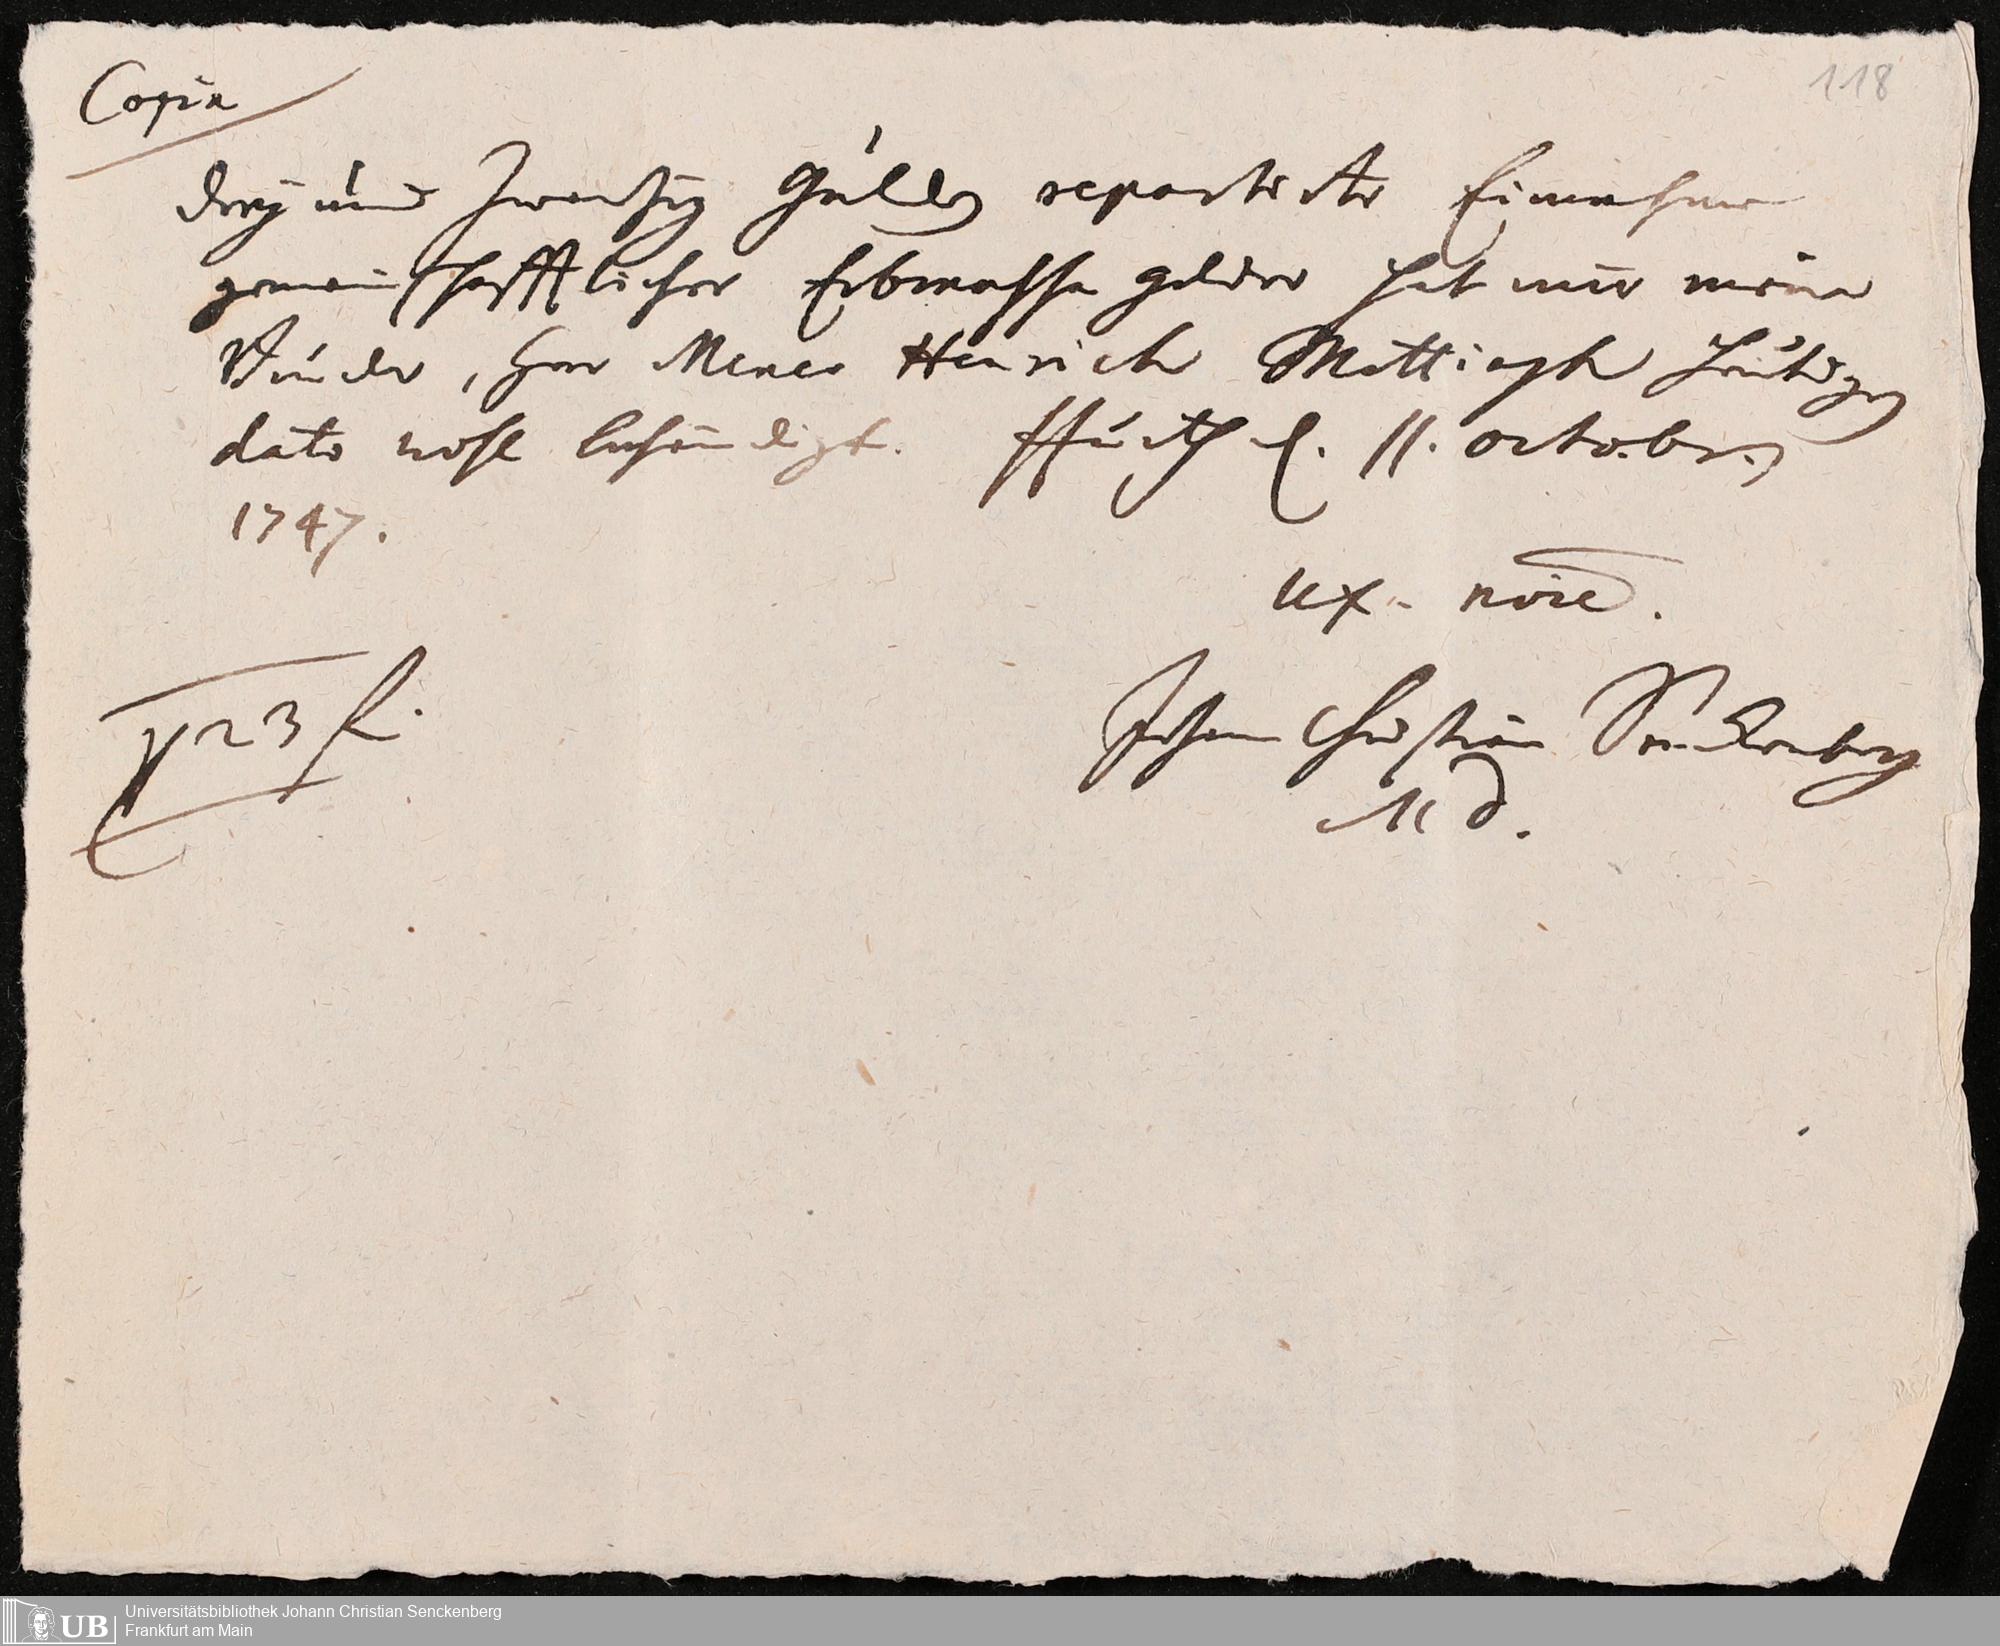 Copia
118
drey und Zwantzig Gulden repartirte Einnahme
gemeinschafftlicher Erbmassa gelder hat mir meine
Bruder, Herr Henrich heutigen
dato wohl behändigt. ffurth d. 11. octobr.
1747.
ux. noie.
23 f.
Johann Christian Senckenberg
MD.
Universitätsbibliothek Johann Christian Senckenberg
Frankfurt am Main
UB